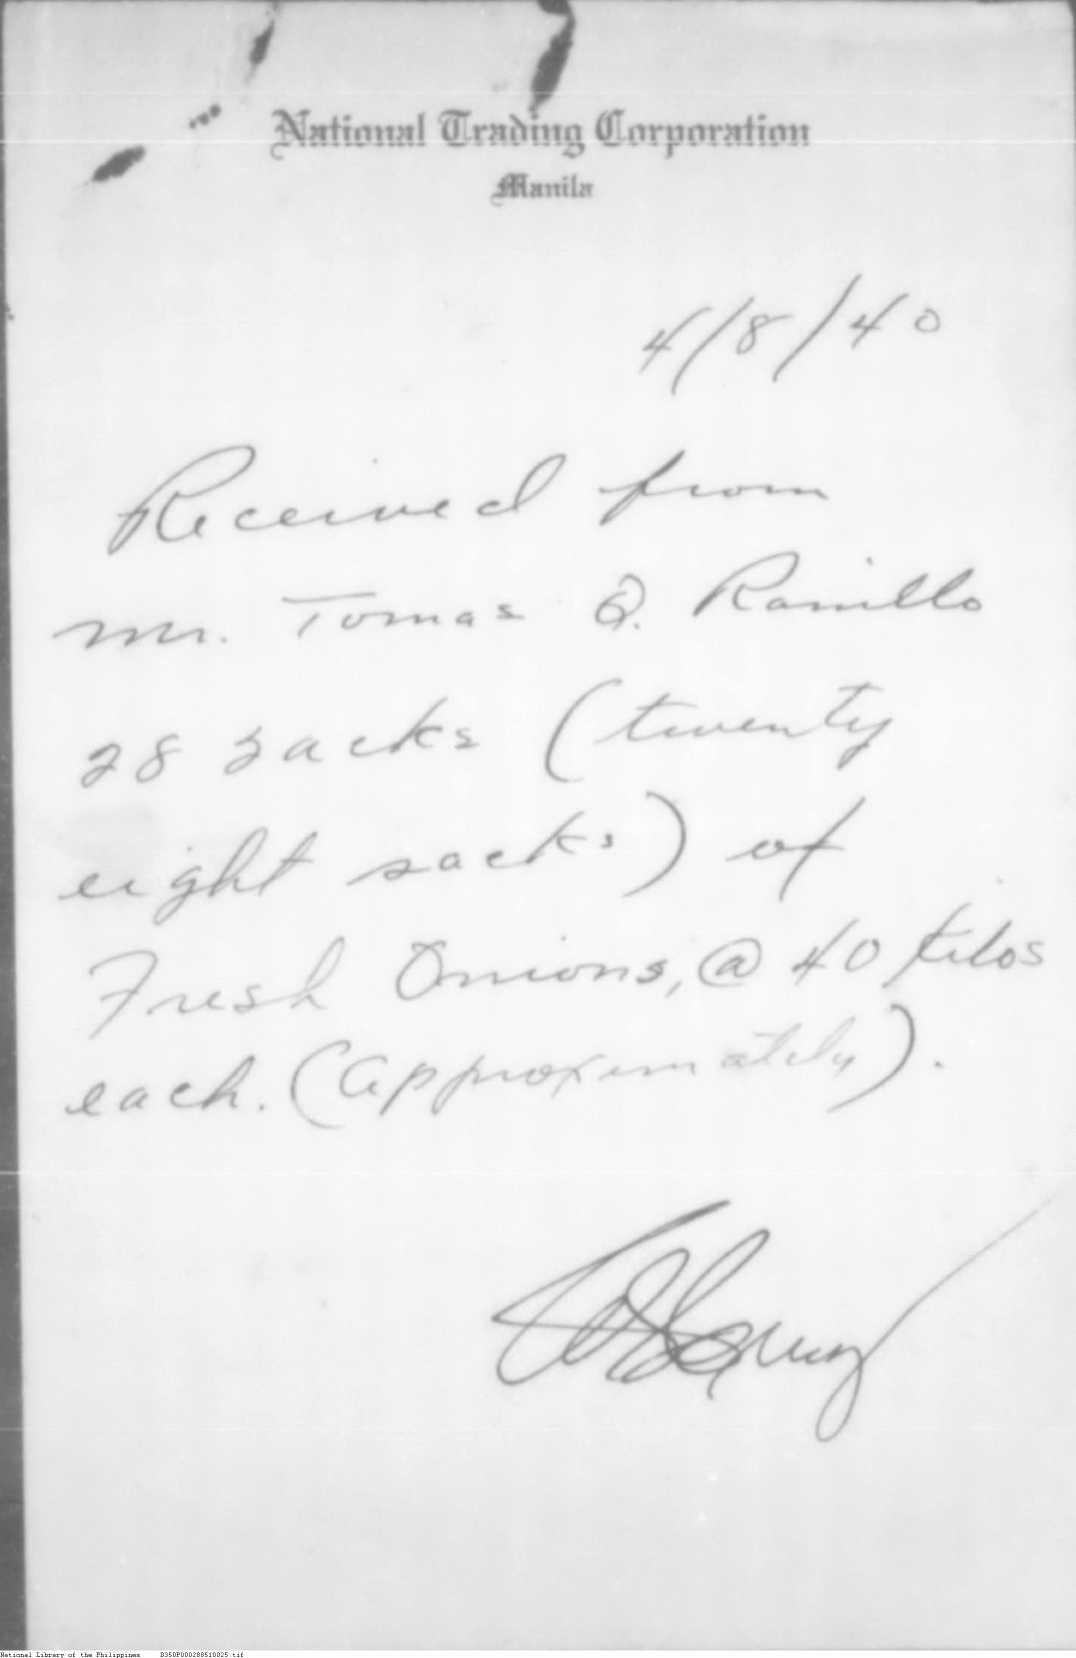 National Trading Corporation
Manila
4/8/40
Received from
Mr. Tomas Q. Ranillo
28 sacks (twenty
eight sacks) of
Fresh Onions, @ 40 kilos
each. (approximately).
National Library of the Philippines D350P000288510025.tif